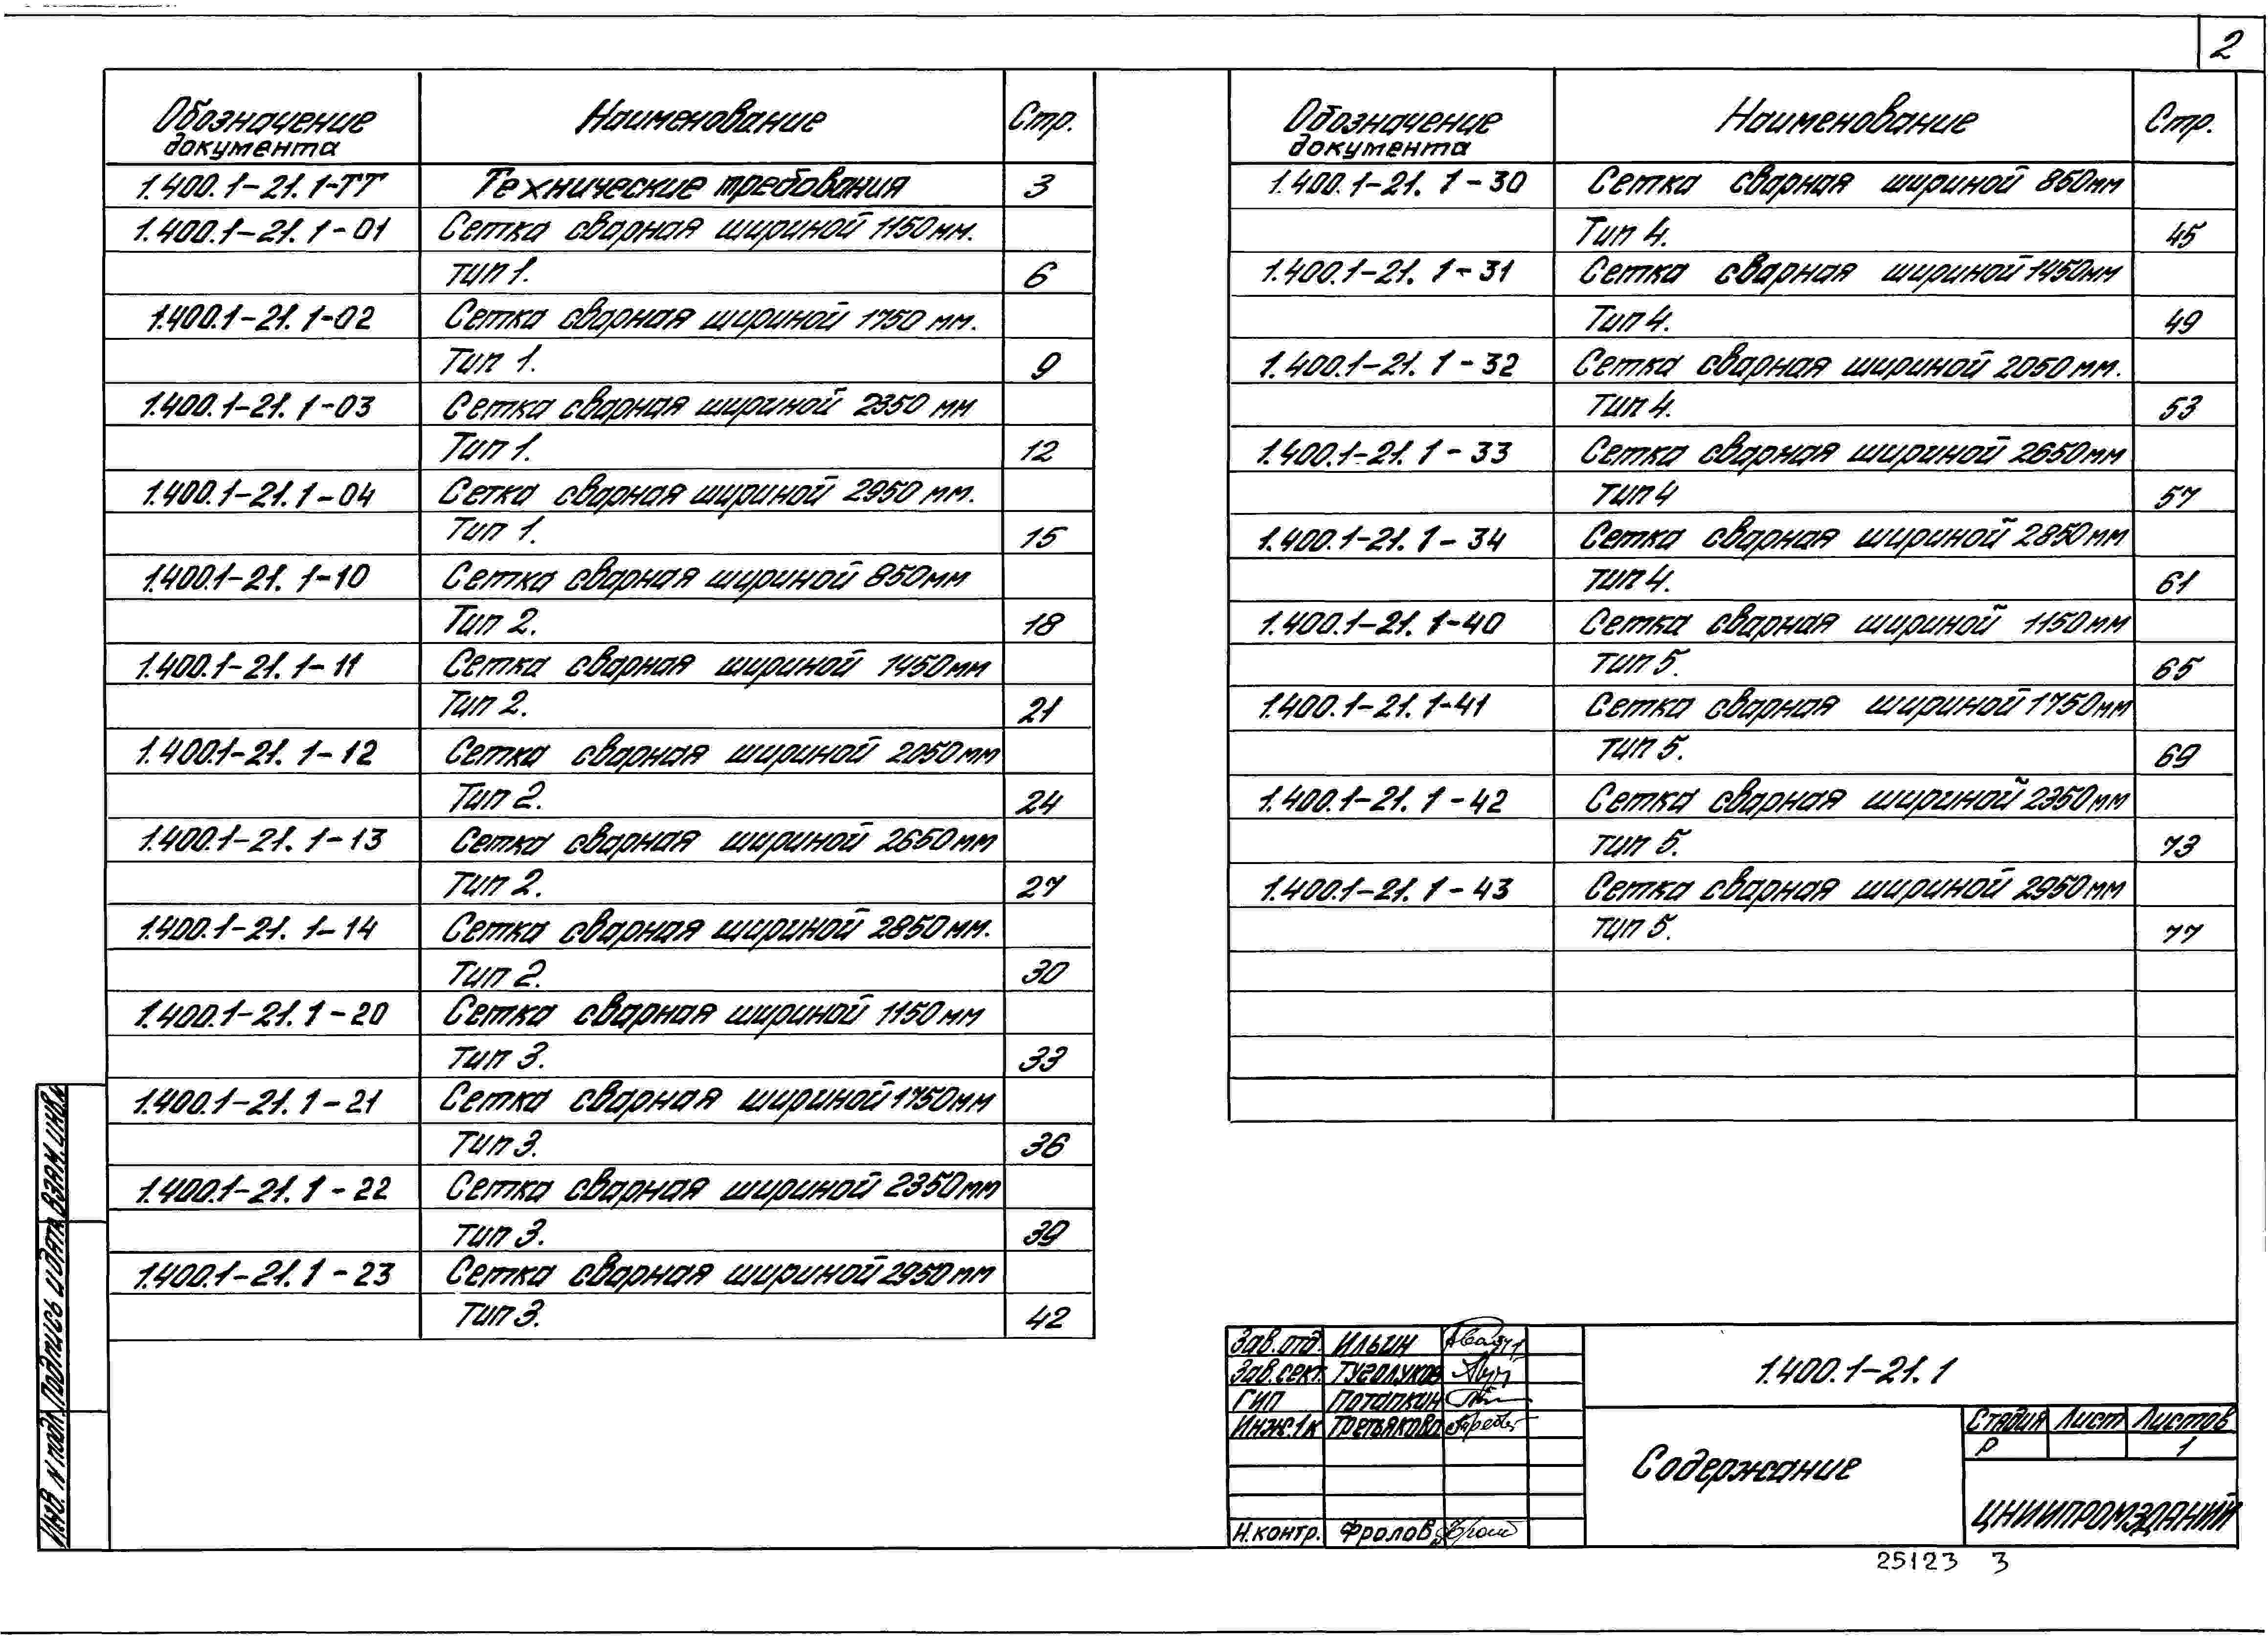 2
Обозначение документа Наименование Стр.
1.400.1-21.1-ТТ Технические требования 3
1.400.1-21.1-01 Сетка сварная шириной 1150мм.
тип 1. 6
1.400.1-21.1-02 Сетка сварная шириной 1750 мм.
Тип 1. 9
1.400.1-21.1-03 Сетка сварная шириной 2350 мм
Тип 1. 12
1.400.1-21.1-04 Сетка сварная шириной 2950 мм.
Тип 1. 15
1.400.1-21.1-10 Сетка сварная шириной 850мм
Тип 2. 18
1.400.1-21.1-11 Сетка сварная шириной 1450мм
Тип 2. 21
1.400.1-21.1-12 Сетка сварная шириной 2050мм
Тип 2. 24
1.400.1-21.1-13 Сетка сварная шириной 2650мм
Тип 2. 27
1.400.1-21.1-14 Сетка сварная шириной 2850мм.
Тип 2. 30
1.400.1-21.1-20 Сетка сварная шириной 1150мм
Тип 3. 33
1.400.1-21.1-21 Сетка сварная шириной 1750мм
Тип 3. 36
1.400.1-21.1-22 Сетка сварная шириной 2350мм
Тип 3. 39
1.400.1-21.1-23 Сетка сварная шириной 2950мм
Тип 3. 42
Обозначение документа Наименование Стр.
1.400.1-21.1-30 Сетка сварная шириной 850мм
Тип 4. 45
1.400.1-21.1-31 Сетка сварная шириной 1450мм
Тип 4. 49
1.400.1-21.1-32 Сетка сварная шириной 2050мм.
Тип 4. 53
1.400.1-21.1-33 Сетка сварная шириной 2650мм
Тип 4 57
1.400.1-21.1-34 Сетка сварная шириной 2850мм
Тип 4. 61
1.400.1-21.1-40 Сетка сварная шириной 1150мм
Тип 5. 65
1.400.1-21.1-41 Сетка сварная шириной 1750мм
Тип 5. 69
1.400.1-21.1-42 Сетка сварная шириной 2350мм
Тип 5. 73
1.400.1-21.1-43 Сетка сварная шириной 2950мм
Тип 5. 77
Инв. N подл. Подпись и дата Взам. инв. N
Зав.отд. Ильин
Зав.сект. Туголуков
ГИП Потапкин
Инж.1к Третьякова
Н.контр. Фролов
1.400.1-21.1
Содержание
Стадия Лист Листов
Р 1
ЦНИИПРОМЗДАНИЙ
25123 3